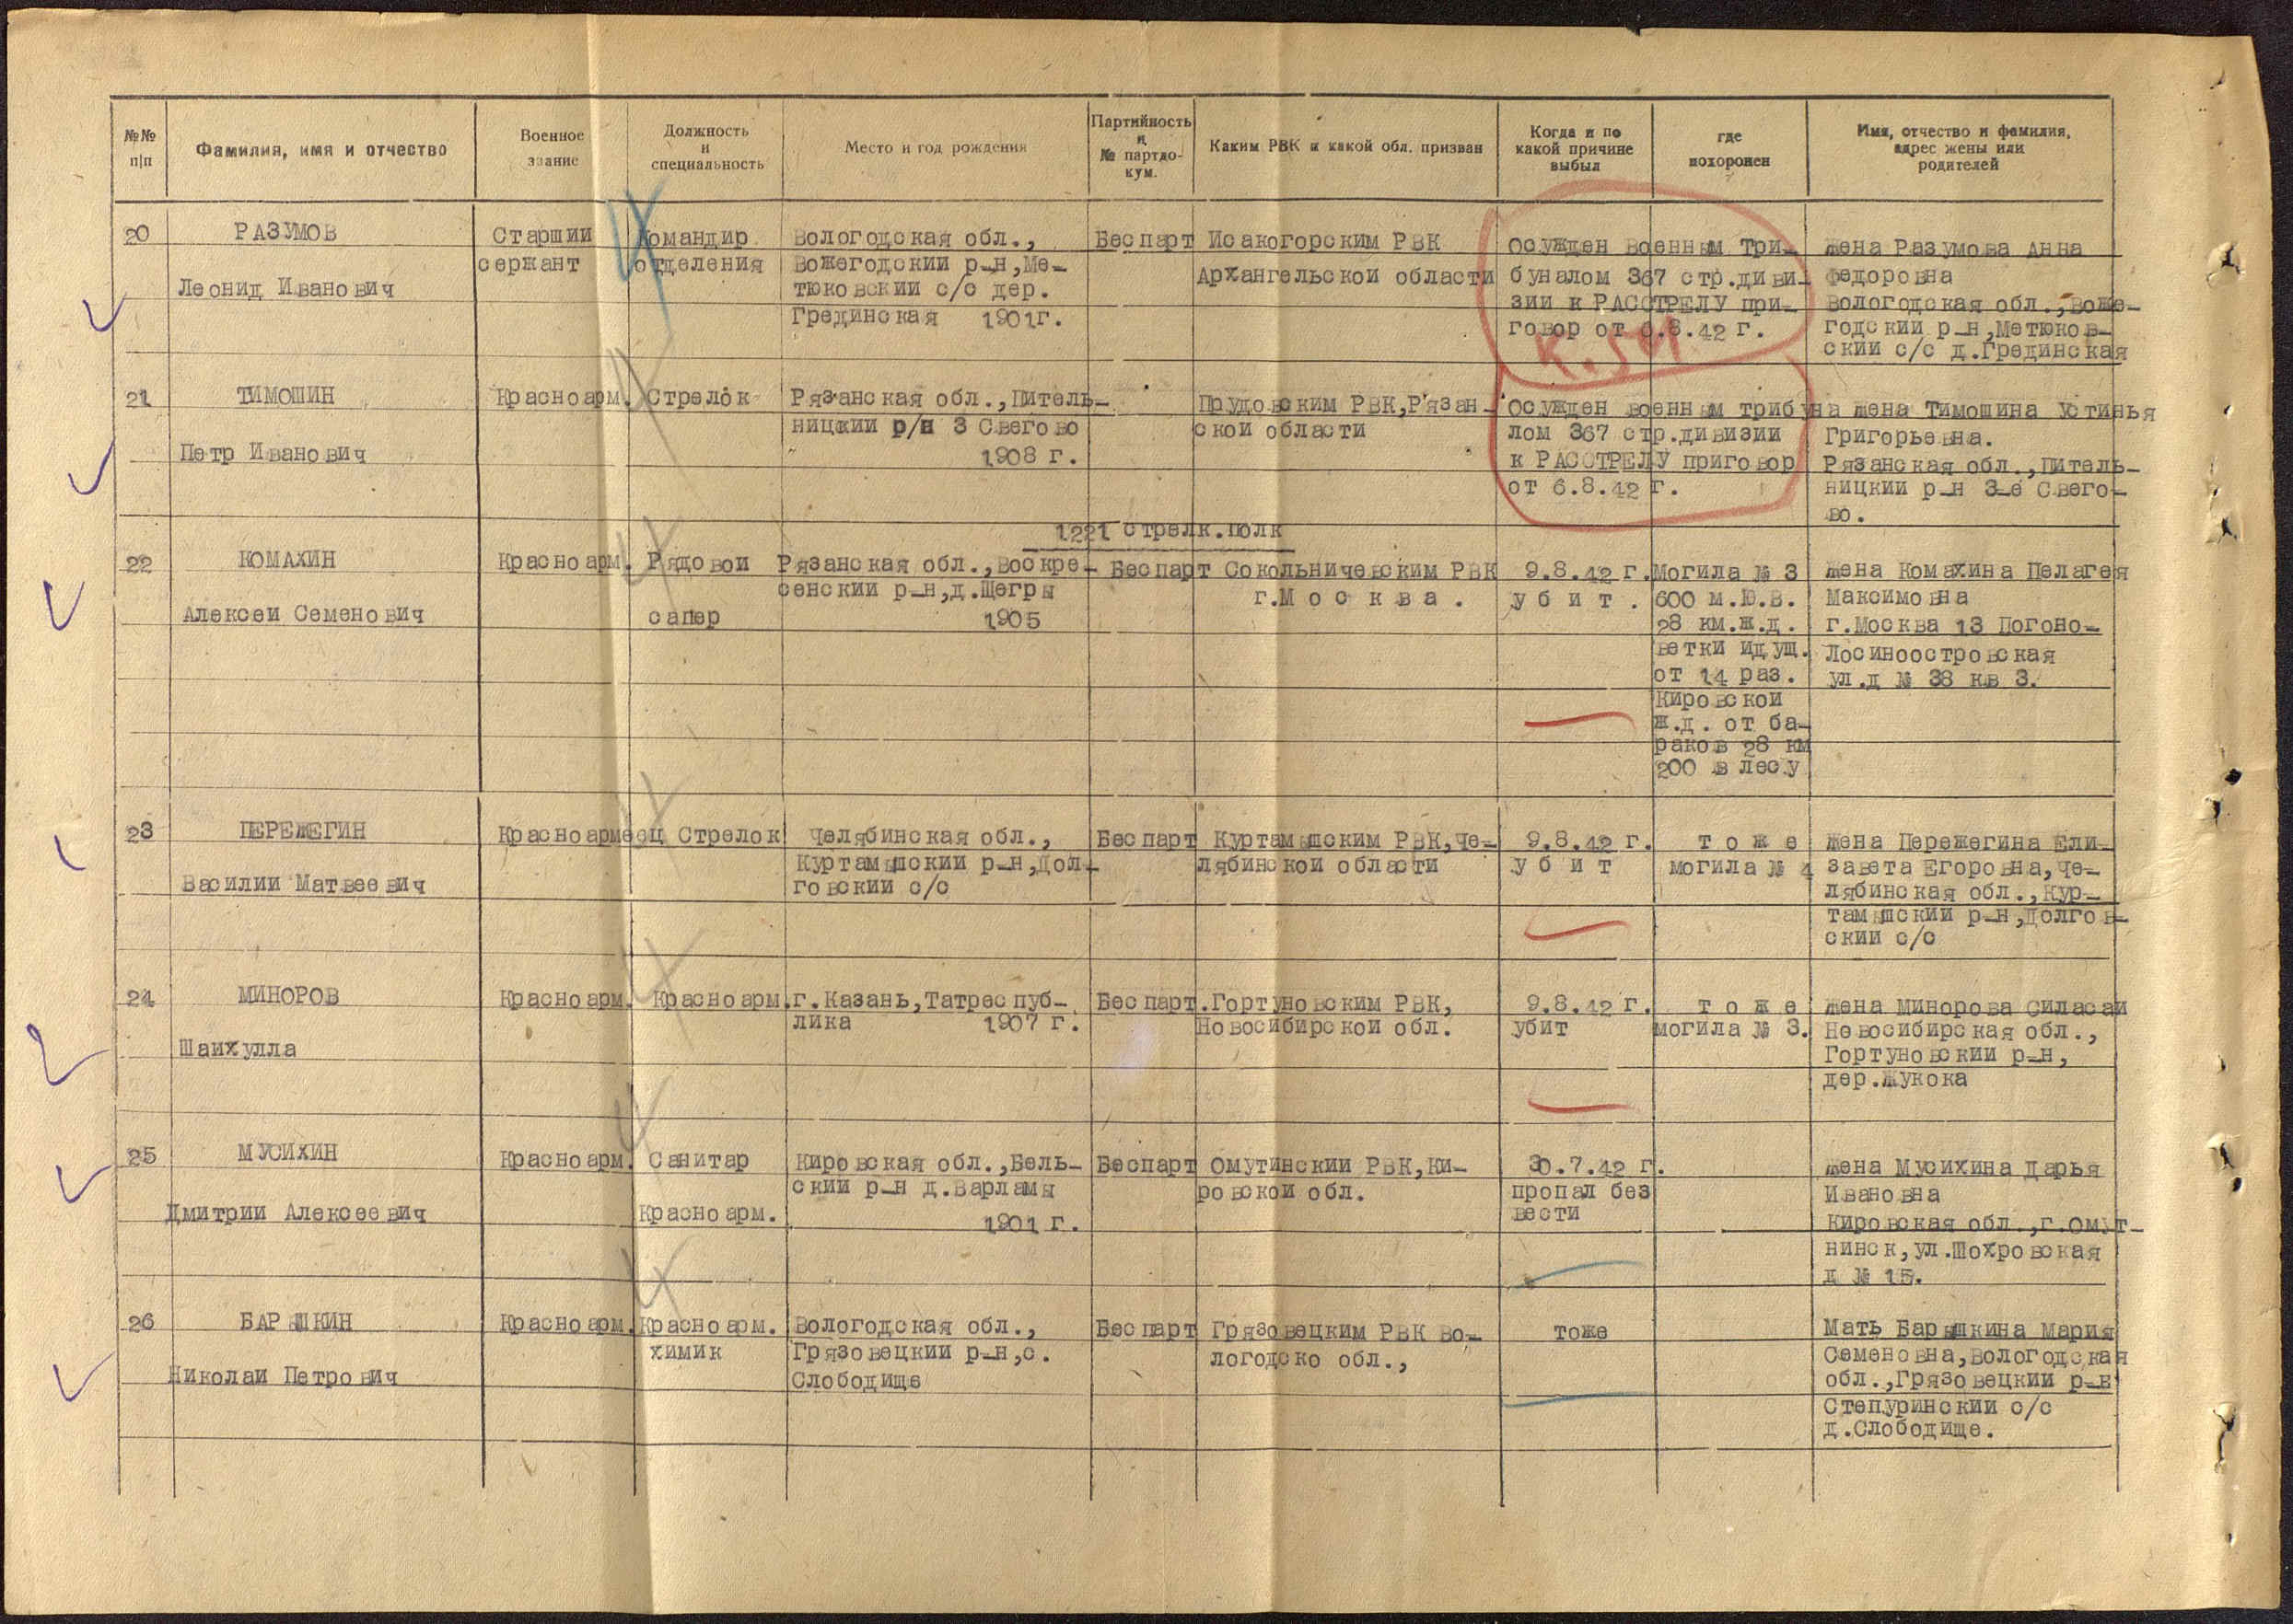 №№ п|п
Фамилия, имя и отчество
Военное звание
Должность и специальность
Место и год рождения
Партийность и № партдо-кум.
Каким РВК и какой обл. призван
Когда и по какой причине выбыл
где похоронен
Имя, отчество и фамилия, адрес жены или родителей
20
РАЗУМОВ
Леонид Иванович
Старшии
сержант
Командир
отделения
Вологодская обл.,
Вожегодскии р-н,Ме-
тюковскии с/с дер.
Грединская 1901г.
Беспарт
Исакогорским РВК
Архангельскои области
Осужден Военным Три-
буналом 367 стр.диви-
зии к РАССТРЕЛУ при-
говор от 6.8.42 г.
Жена Разумова Анна
Федоровна
Вологодская обл.,Воже-
годскии р-н,Метюков-
скии с/с д.Грединская
21
ТИМОШИН
Петр Иванович
Красноарм.
Стрелок
Рязанская обл.,Питель-
ницкии р/н 3 Свегово
1908 г.
Прудовским РВК,Рязан-
скои области
Осужден военным трибуна
лом 367 стр.дивизии
к РАССТРЕЛУ приговор
от 6.8.42 г.
Жена Тимошина Устинья
Григорьевна.
Рязанская обл.,Питель-
ницкии р-н 3-е Свего-
во.
1221 стрелк.полк
22
КОМАХИН
Алексеи Семенович
Красноарм.
Рядовои
сапер
Рязанская обл.,Воскре-
сенскии р-н,д.Щегры
1905
Беспарт
Сокольничевским РВК
г.Москва.
9.8.42 г.
убит.
Могила № 3
600 м.Ю.В.
28 км.ж.д.
ветки идущ.
от 14 раз.
Кировскои
ж.д. от ба-
раков 28 км
200 в лесу
Жена Комахина Пелагея
Максимовна
г.Москва 13 Погоно-
Лосиноостровская
ул.д № 38 кв 3.
23
ПЕРЕЖЕГИН
Василии Матвеевич
Красноармеец
Стрелок
Челябинская обл.,
Куртамышскии р-н,Дол-
говскии с/с
Беспарт
Куртамышским РВК,Че-
лябинскои области
9.8.42 г.
убит
тоже
могила № 4
Жена Пережегина Ели-
завета Егоровна,Че-
лябинская обл.,Кур-
тамышскии р-н,Долгов-
скии с/с
24
МИНОРОВ
Шаихулла
Красноарм.
Красноарм.
г.Казань,Татреспуб-
лика 1907 г.
Беспарт.
Гортуновским РВК,
Новосибирскои обл.
9.8.42 г.
убит
тоже
могила № 3.
Жена Минорова Силасаи
Новосибирская обл.,
Гортуновскии р-н,
дер.Жукока
25
МУСИХИН
Дмитрии Алексеевич
Красноарм.
Санитар
Красноарм.
Кировская обл.,Бель-
скии р-н д.Варламы
1901 г.
Беспарт
Омутинскии РВК,Ки-
ровскои обл.
30.7.42 г.
пропал без
вести
Жена Мусихина Дарья
Ивановна
Кировская обл.,г.Омут-
нинск,ул.Шохровская
д № 15.
26
БАРЫШКИН
Николаи Петрович
Красноарм.
Красноарм.
химик
Вологодская обл.,
Грязовецкии р-н,с.
Слободище
Беспарт
Грязовецким РВК Во-
логодско обл.,
тоже
Мать Барышкина Мария
Семеновна,Вологодская
обл.,Грязовецкии р-н
Степуринскии с/с
д.Слободище.